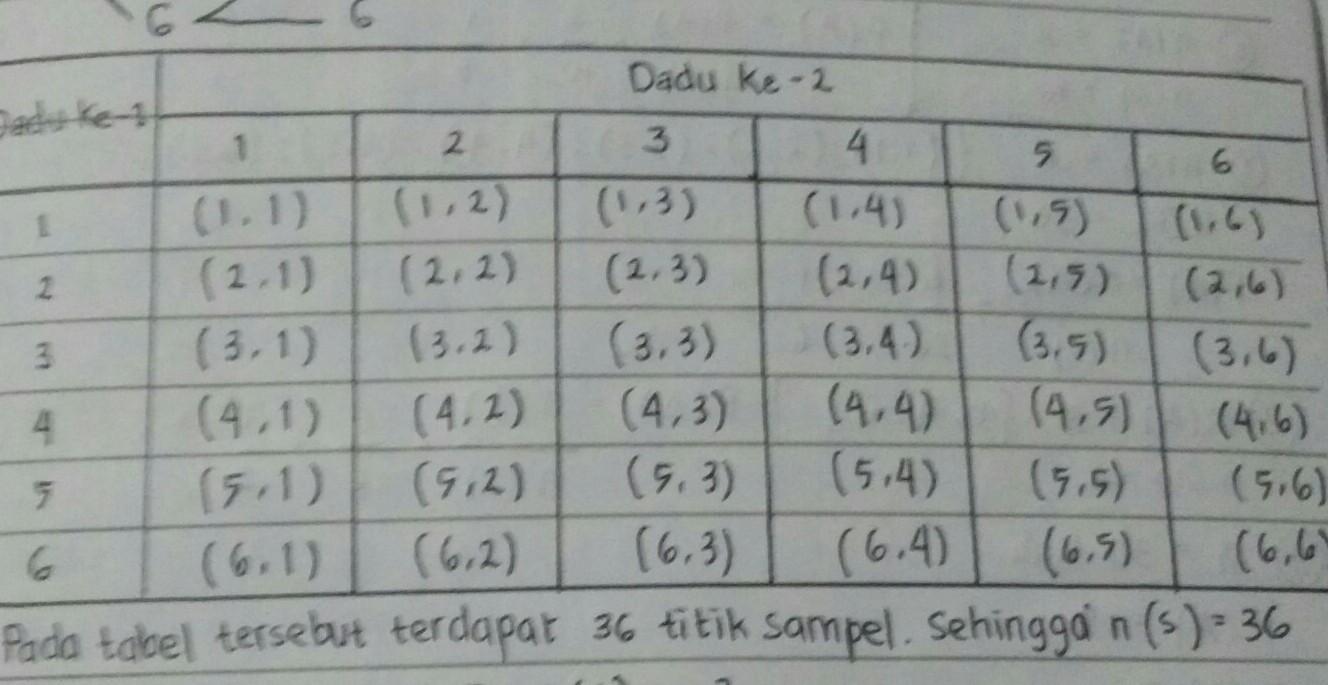 6 6
Dadu Ke-2
Dadu Ke-1
1 2 3 4 5 6
1 (1,1) (1,2) (1,3) (1,4) (1,5) (1,6)
2 (2,1) (2,2) (2,3) (2,4) (2,5) (2,6)
3 (3,1) (3,2) (3,3) (3,4) (3,5) (3,6)
4 (4,1) (4,2) (4,3) (4,4) (4,5) (4,6)
5 (5,1) (5,2) (5,3) (5,4) (5,5) (5,6)
6 (6,1) (6,2) (6,3) (6,4) (6,5) (6,6
Pada tabel tersebut terdapat 36 titik sampel. Sehingga n(s) = 36